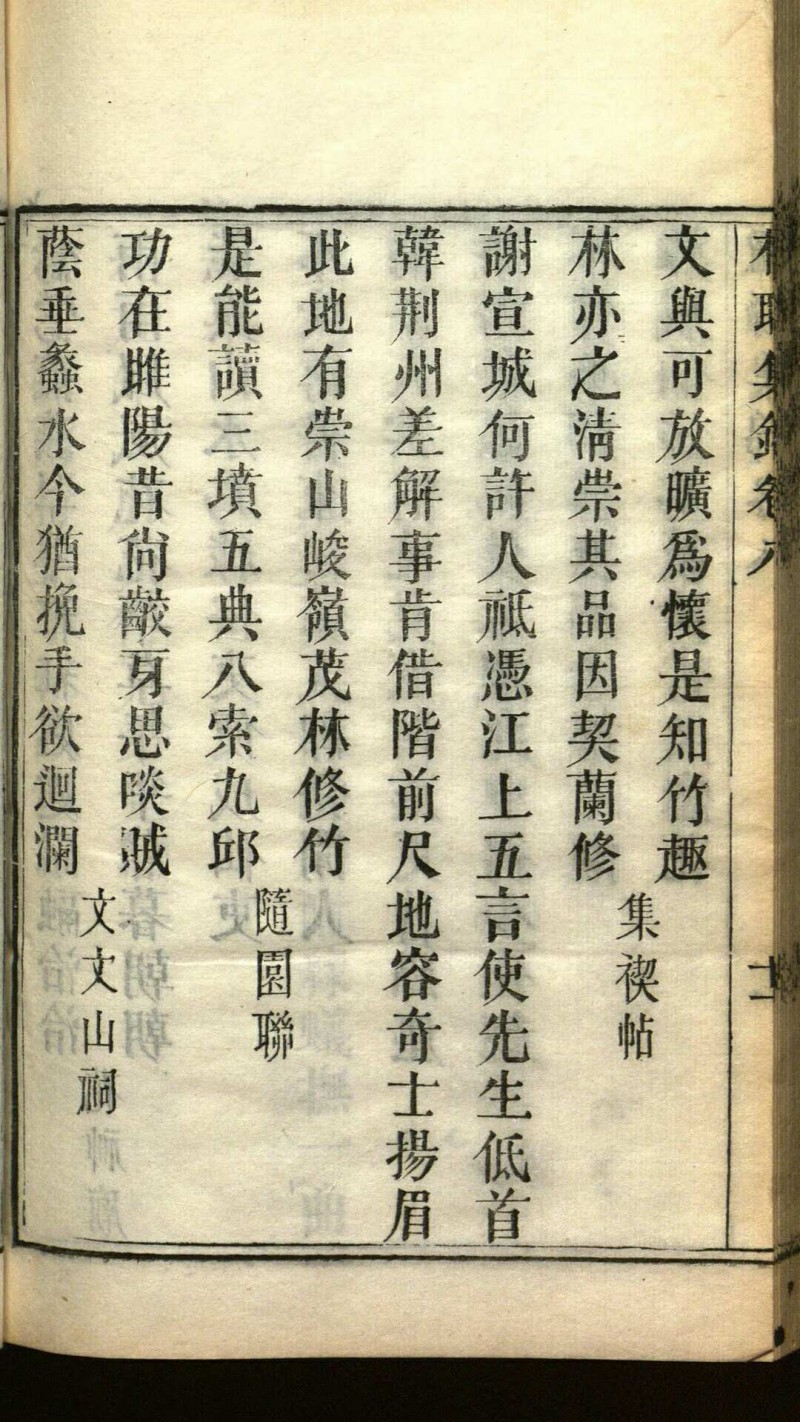 集 卷八
文與可放曠爲懷是知竹趣
林亦之淸崇其品因契蘭修
集禊帖
謝宣城何許人祗憑江上五言使先生低首
韓荆州差解事肯借階前尺地容奇士揚眉
此地有崇山峻嶺茂林修竹
是能讀三墳五典八索九邱
隨園聯
功在睢陽昔尙齩牙思啖賊
蔭垂蠡水今猶挽手欲迴瀾
文文山祠